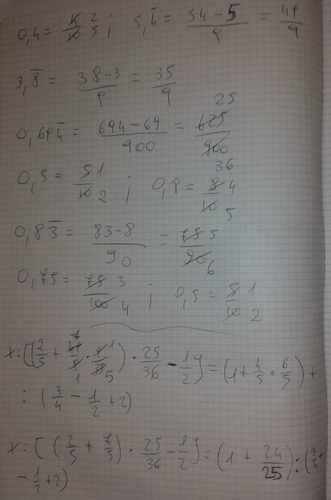 0,4 = 4/10 2/5 ; 5,4̅ = 54-5/9 = 49/9
3,8̅ = 38-3/9 = 35/9
0,694̅ = 694-69/900 = 625/900 25/36
0,5 = 5/10 1/2 ; 0,8 = 8/10 4/5
0,83̅ = 83-8/90 = 75/90 5/6
0,75 = 75/100 3/4 ; 0,5 = 5/10 1/2
x : [(2/5 + · ) · 25/36 - 1/2] = (1 + 4/5 · 6/5) ÷
: (3/4 - 1/2 + 2)
x : [(2/5 + 7/5) · 25/36 - 1/2] = (1 + 24/25) : (3/4
- 1/2 + 2)